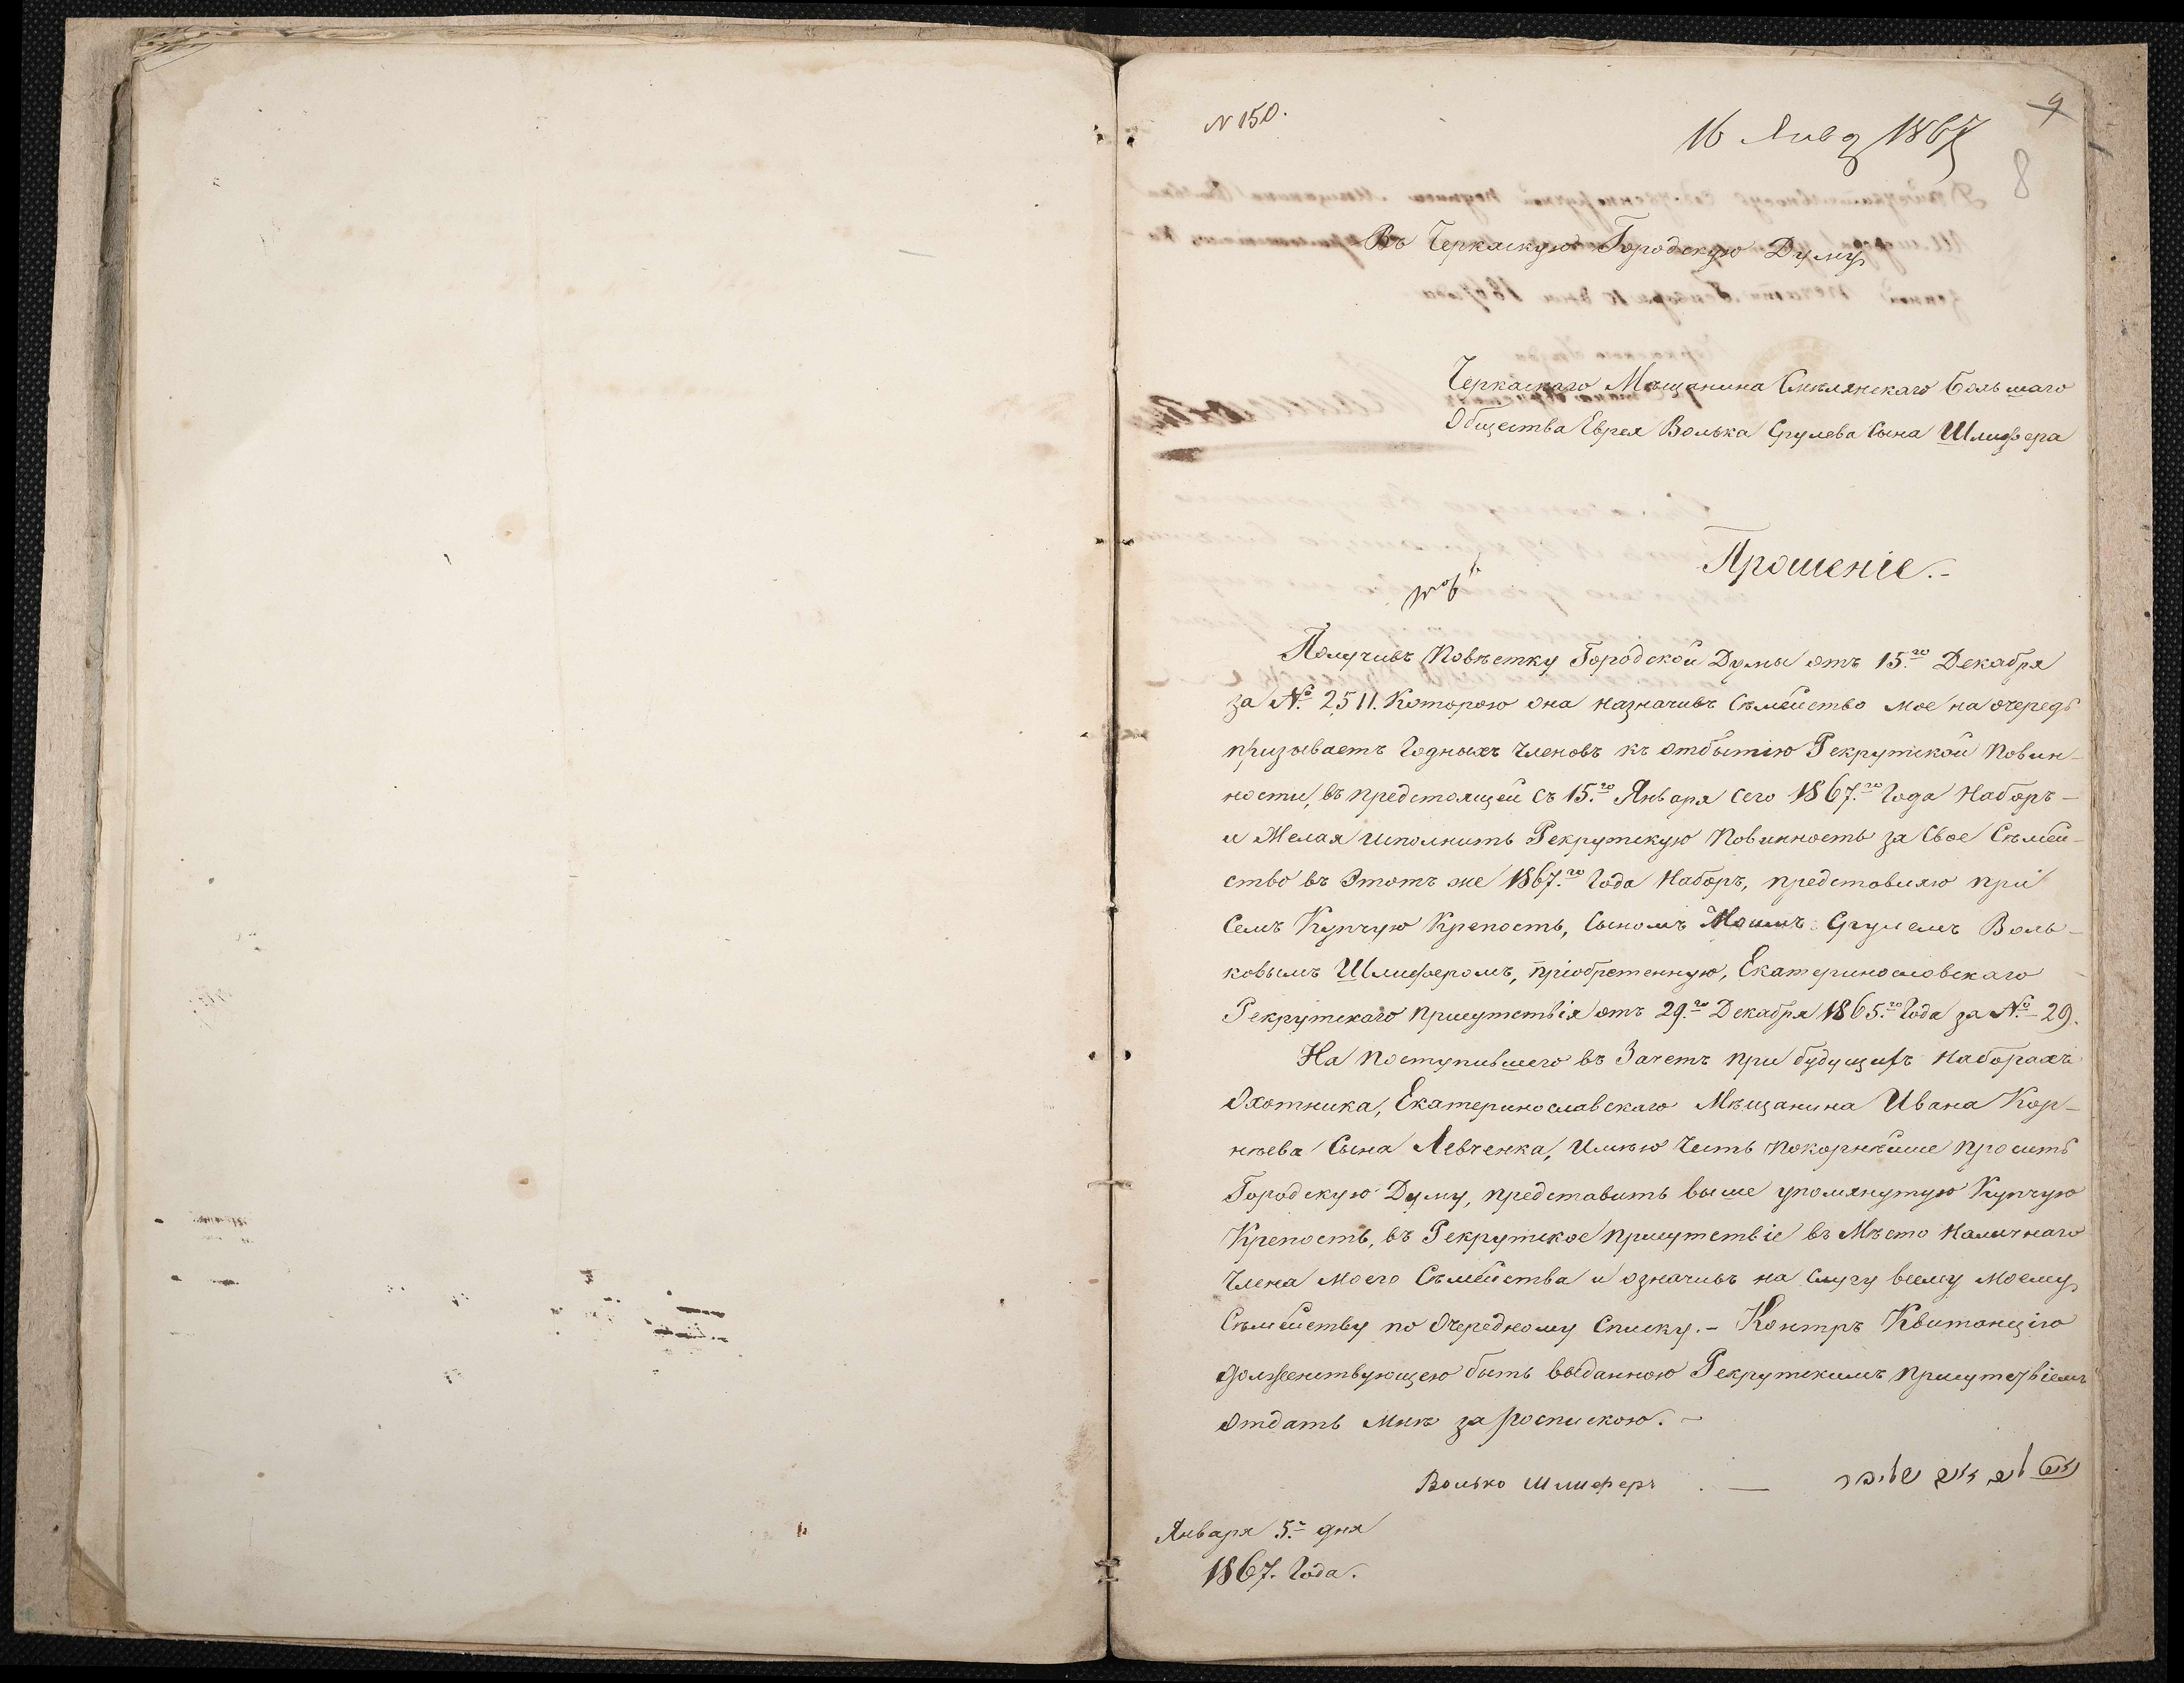 N 150.
16 Янв 1867
9
8
Въ Черкаскую Городскую Думу
Черкаскаго Мѣщанина Смѣлянскаго Большаго
Общества Еврея Волька Срулева Сына Шлифера
Прошеніе.-
Получивъ Повѣстку Городской Думы отъ 15.го Декабря
за №. 2511. Которою она назначивъ Сѣмейство мое на очередь
призываетъ Годныхъ Членовъ къ отбытію Рекрутской Повин-
ности, въ предстоящей съ 15.го Января сего 1867.го Года Наборъ-
и Желая исполнить Рекрутскую Повинность за Свое Сѣмей-
ство въ Этотъ же 1867.го Года Наборъ, представляю при
Семъ Купчую Крепость, Сыномъ Моимъ Срулемъ Воль-
ковымъ Шлиферомъ, пріобретенную, Екатеринословскаго
Рекрутскаго Присутствія отъ 29.го Декабря 1865.го Года за №. 29.
На поступившего въ Зачетъ при будущихъ Наборахъ
Охотника, Екатеринославскаго Мѣщанина Ивана Кор-
нѣева Сына Левченка, Имѣю Честь Покорнѣйше просить
Городскую Думу, представить выше упомянутую Купчую
Крепость, въ Рекрутское Присутствіе въ Мѣсто Наличнаго
Члена моего Сѣмейства и означивъ на Слугу всему моему
Сѣмейству по Очередному Списку.- Контръ Квитанцію
долженствующею быть выданною Рекрутскимъ Присутствіемъ
Отдать мнѣ за Роспискою.-
Волько Шлиферъ . —
Января 5.- дня
1867. Года.